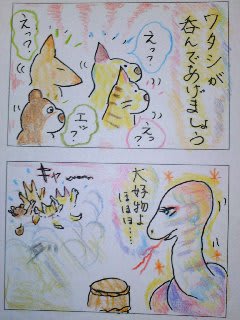 ワタシが
呑んであげましょう
えっ?
えっ?
えっ?
エッ?
大好物よ
ほほほ……
キャーーー